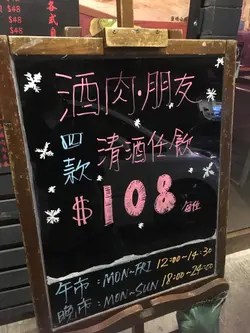 酒肉·朋友
四款清酒任飲
$108/每位
午市：MON-FRI 12:00-14:30
晚市：MON-SUN 18:00-24:00
$48
$48
$48